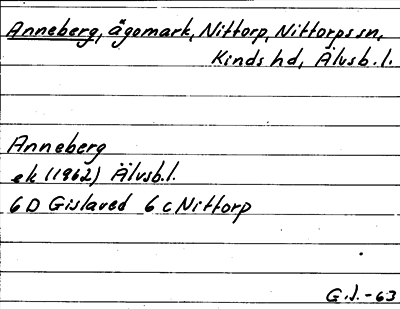 Anneberg, ägomark, Nittorp, Nittorps sn,
Kinds hd, Älvsb. l.
Anneberg
ek (1962) Älvsb. l.
6D Gislaved 6c Nittorp
G.J. -63